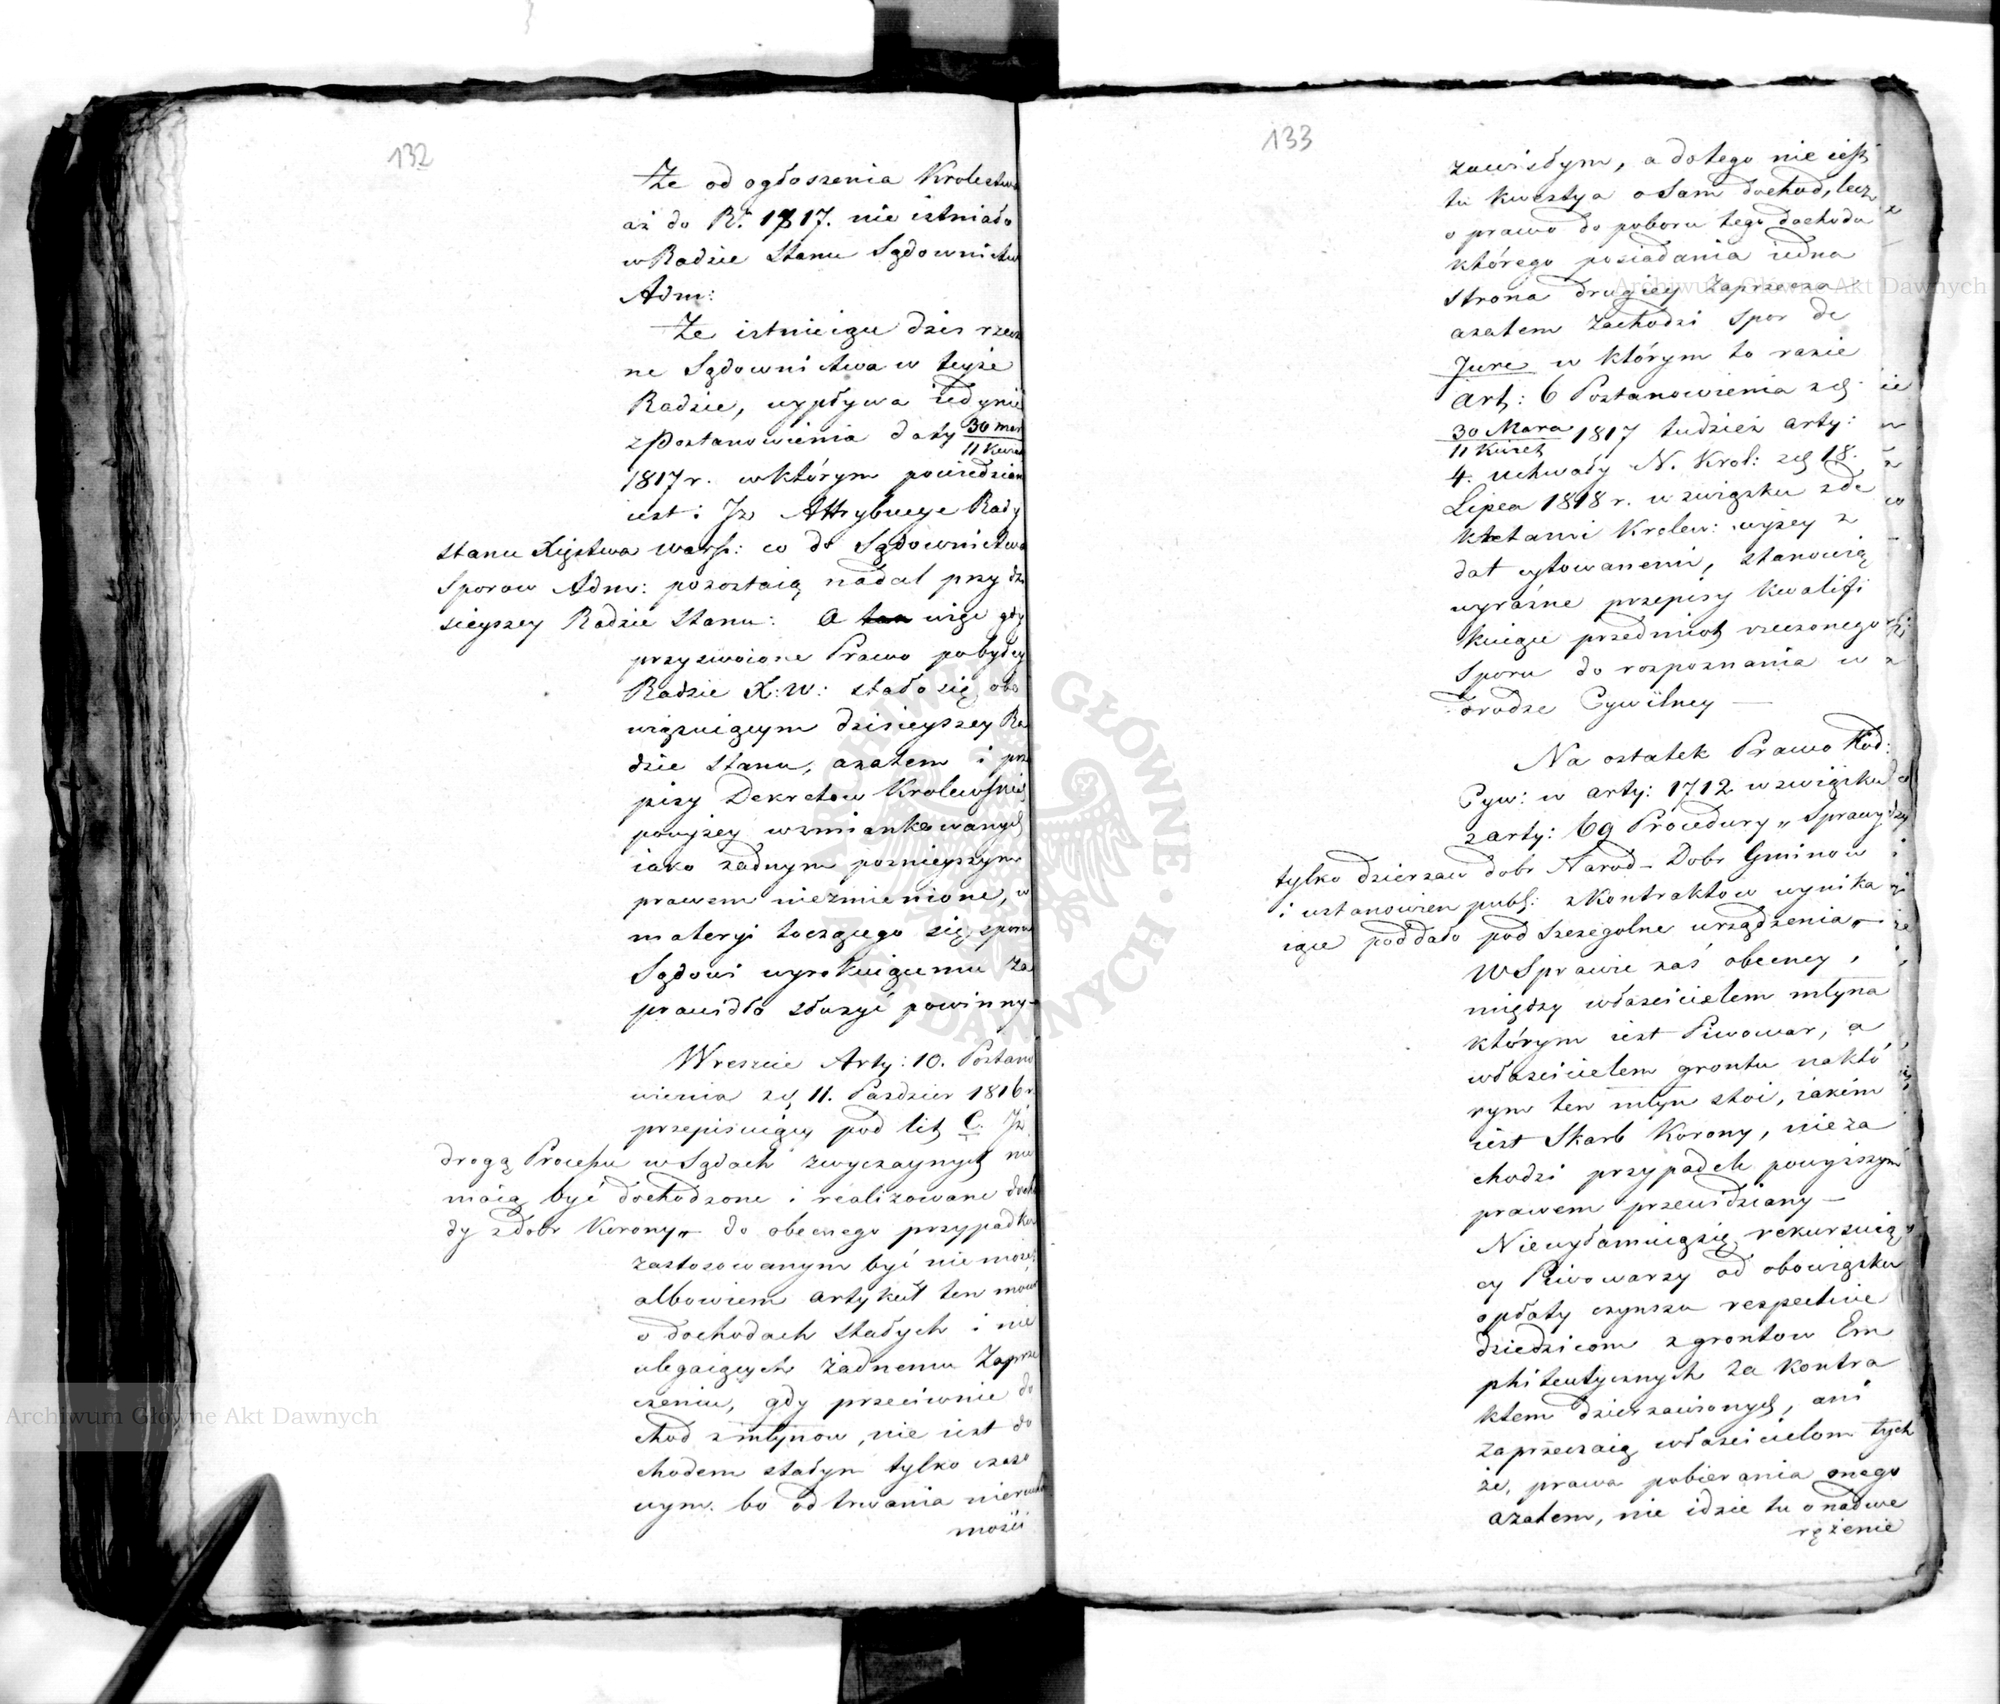 132
Że od ogłoszenia Krolestwa
aż do R. 1817. nie istniało
w Radzie Stanu Sądownictwo
Adm:
Że istnieiące dziś rzeczo
ne Sądownictwa w teyże
Radzie, wypływa iedynie
z Postanowienia daty 30 mar
11 Kwiet
1817 r. w którym powiedzian
iest: Jż Attrybucye Rady
Stanu Xięstwa warsz: co do Sądownictwa
Sporow Adm: pozostaią nadal przy dzi
sieyszey Radzie Stanu: A więc gdy
przyswoione Prawo pobyłey
Radzie X: W: stało się obo
wiązuiącym dzisieyszey Ra
dzie Stanu, azatem i prze
pisy Dekretow Krolewskich
powyżey wzmiankowanych
iako żadnym poznieyszym
prawem niezmienione, w
materyi toczącego się sporu
Sądowi wyrokuiącemu za
prawidło służyć powinny –
Wreszcie Arty: 10. Postano
wienia z d. 11. Pazdzier 1816 r
przepisuiący pod lit C. Jż
drogą Processu w Sądach zwyczaynych nie
maią być dochodzone i realizowane docho
dy z dobr Korony„ do obecnego przypadku
zastosowanym być nie może
albowiem artykuł ten mowi
o dochodach stałych i nie
ulegaiących żadnemu Zaprze
czeniu, gdy przeciwnie do
chod z młynow, nie iest do
chodem stałym tylko czaso
wym. bo od trwania nierucho
mości
133
zawisłym, a do tego nie iest
tu kwestya o Sam dochod, lecz
o prawo do poboru tego dochodu
którego posiadania iedna
Strona drugiey Zaprzecza –
azatem Zachodzi Spor de
Jure w którym to razie
Art: 6 Postanowienia z d.
30 Marca 1817 tudzież arty:
11 Kwiet
4. uchwały N. Krol: z d. 18.
Lipca 1818 r. w związku z de
kretami Krolew: wyżey z
dat cytowanemi, stanowią
wyraźne przepisy kwalifi
kuiące przedmiot rzeczonego
Sporu do rozpoznania w
drodze Cywilney –
Na ostatek Prawo Kod:
Cyw: w arty: 1712 w związku
z arty: 69 Procedury „ Sprawy
tylko dzierzaw dobr Narod – Dobr Gminow
i ustanowien publ: z Kontraktow wynika
iące poddało pod Szczegolne urządzenia„ –
W Sprawie zaś obecney,
między właścicielem młyna
którym iest Piwowar, a
właścicielem gruntu na któ
rym ten młyn stoi, iakim
iest Skarb Korony, nie za
chodzi przypadek powyższym
prawem przewidziany –
Niewyłamuiąsię rekursuią
cy Piwowarzy od obowiązku
opłaty czynszu respective
dziedzicom z gruntow Em
phiteutycznych za kontra
ktem dzierzawionych, ani
zaprzeczaią właścicielom tych
że, prawa pobierania onego
azatem, nie idzie tu o nadwe
rężenie
Archiwum Główne Akt Dawnych
Archiwum Główne Akt Dawnych
ARCHIWUM GŁÓWNE · AKT DAWNYCH ·